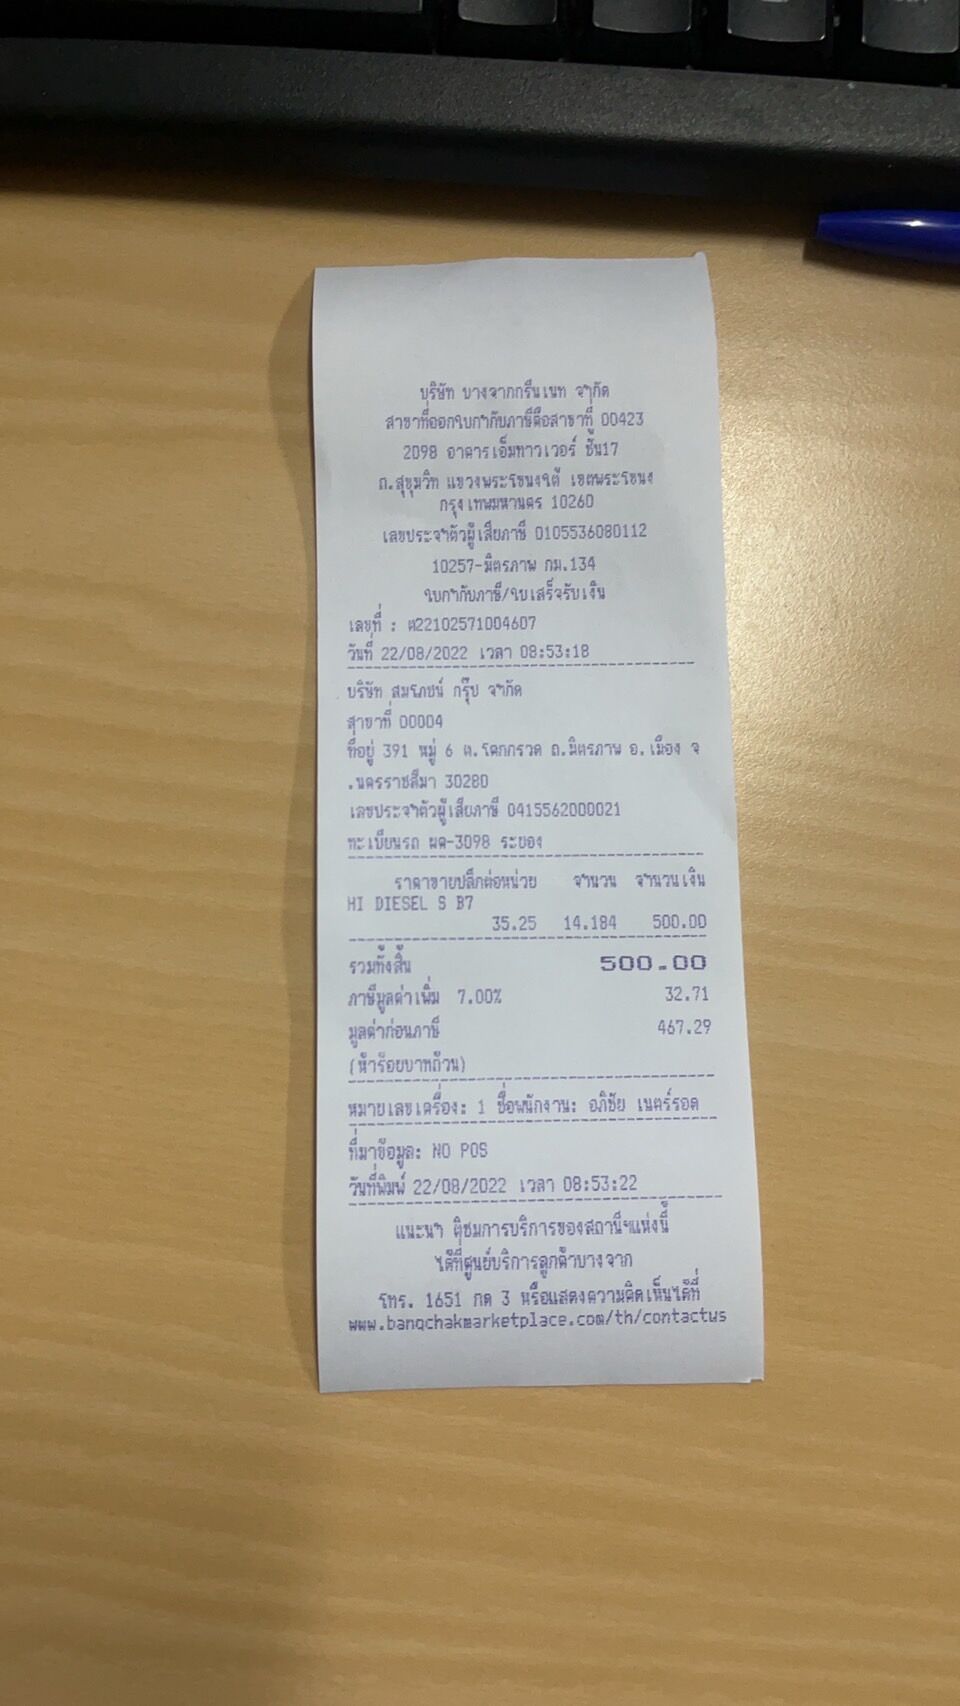 บริษัท บางจากกรีนเนท จำกัด
สาขาที่ออกใบกำกับภาษีคือสาขาที่ 00423
2098 อาคารเอ็มทาวเวอร์ ชั้น17
ถ.สุขุมวิท แขวงพระโขนงใต้ เขตพระโขนง
กรุงเทพมหานคร 10260
เลขประจำตัวผู้เสียภาษี 0105536080112
10257-มิตรภาพ กม.134
ใบกำกับภาษี/ใบเสร็จรับเงิน
เลขที่ : ต22102571004607
วันที่ 22/08/2022 เวลา 08:53:18
บริษัท สมโภชน์ กรุ๊ป จำกัด
สาขาที่ 00004
ที่อยู่ 391 หมู่ 6 ต.โคกกรวด ถ.มิตรภาพ อ.เมือง จ
.นครราชสีมา 30280
เลขประจำตัวผู้เสียภาษี 0415562000021
ทะเบียนรถ ผค-3098 ระยอง
ราคาขายปลีกต่อหน่วย จำนวน จำนวนเงิน
HI DIESEL S B7
35.25 14.184 500.00
รวมทั้งสิ้น 500.00
ภาษีมูลค่าเพิ่ม 7.00% 32.71
มูลค่าก่อนภาษี 467.29
(ห้าร้อยบาทถ้วน)
หมายเลขเครื่อง: 1 ชื่อพนักงาน: อภิชัย เนตร์รอด
ที่มาข้อมูล: NO POS
วันที่พิมพ์ 22/08/2022 เวลา 08:53:22
แนะนำ ติชมการบริการของสถานีฯแห่งนี้
ได้ที่ศูนย์บริการลูกค้าบางจาก
โทร. 1651 กด 3 หรือแสดงความคิดเห็นได้ที่
www.bangchakmarketplace.com/th/contactus